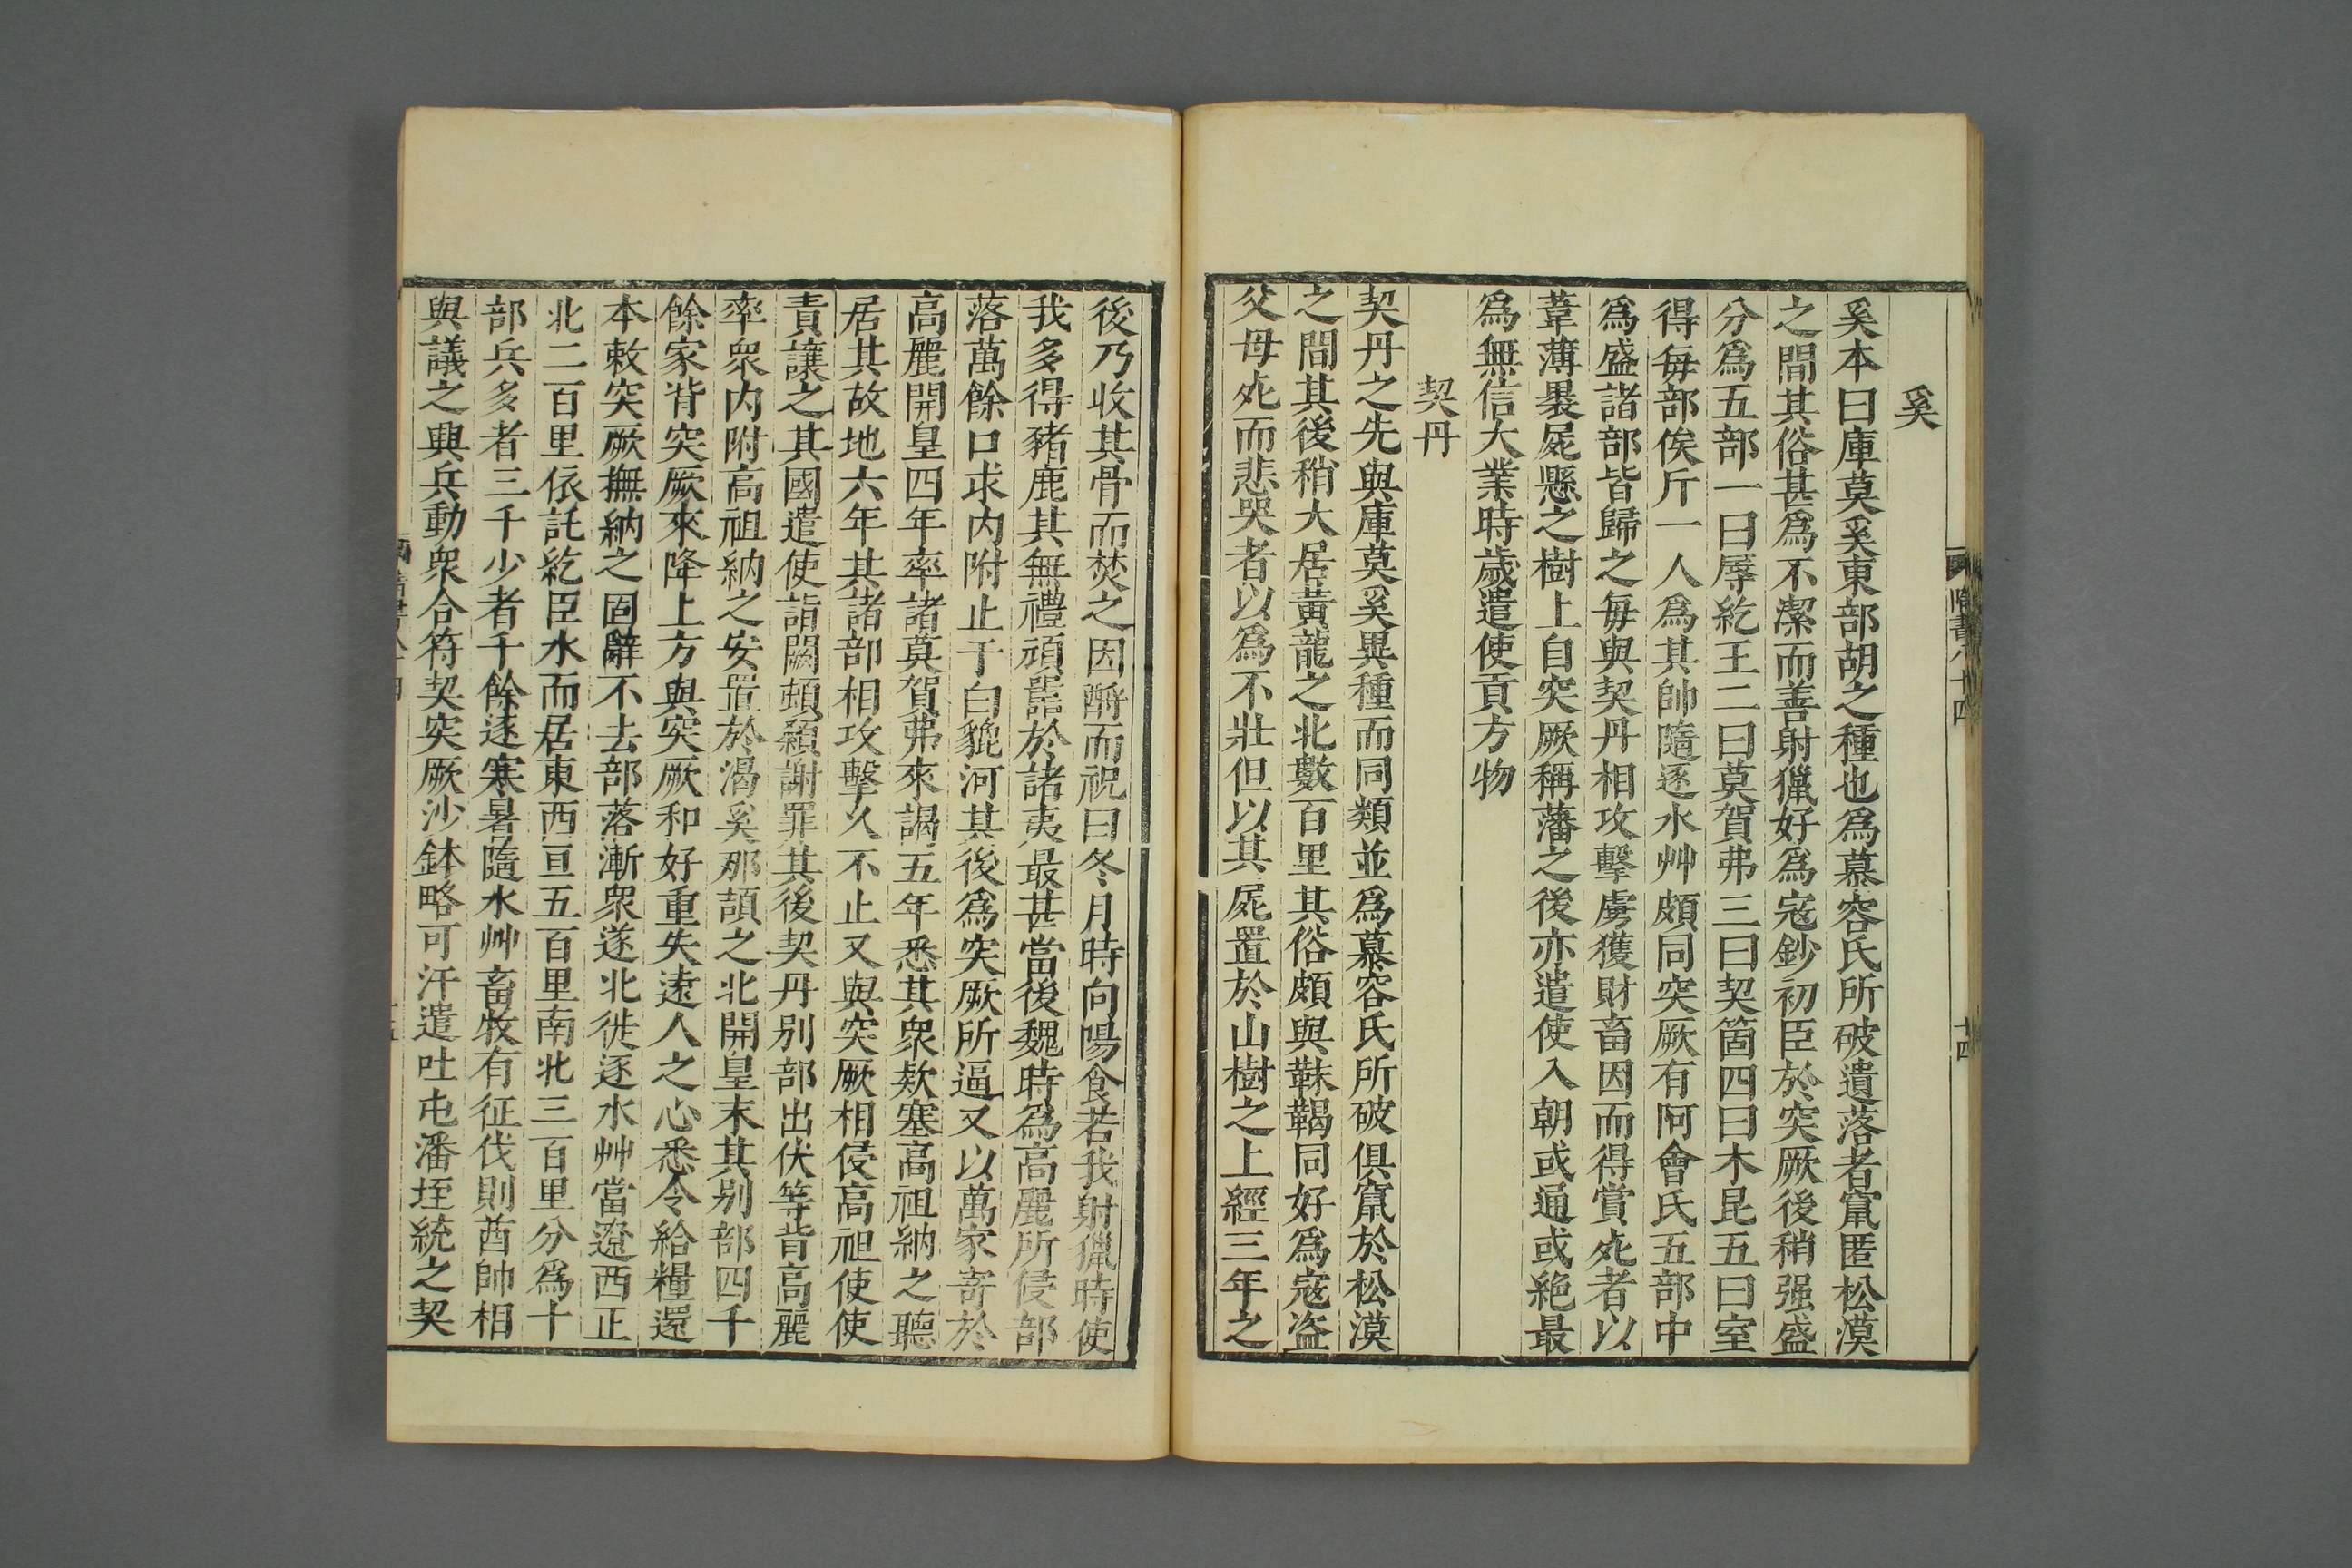 奚
奚本曰庫莫奚東部胡之種也爲慕容氏所破遺落者竄匿松漠
之間其俗甚爲不潔而善射獵好爲寇鈔初臣於突厥後稍强盛
分爲五部一曰辱紇王二曰莫賀弗三曰契箇四曰木昆五曰室
得每部俟斤一人爲其帥隨逐水艸頗同突厥有阿會氏五部中
爲盛諸部皆歸之每與契丹相攻擊虜獲財畜因而得賞死者以
葦薄褁屍懸之樹上自突厥稱藩之後亦遣使入朝或通或絶最
爲無信大業時歲遣使貢方物
契丹
契丹之先與庫莫奚異種而同類並爲慕容氏所破俱竄於松漠
之間其後稍大居黃龍之北數百里其俗頗與靺鞨同好爲寇盗
父母死而悲哭者以爲不壯但以其屍置於山樹之上經三年之
隋書八十四
十四
後乃收其骨而焚之因酹而祝曰冬月時向陽食若我射獵時使
我多得豬鹿其無禮頑嚚於諸夷最甚當後魏時爲高麗所侵部
落萬餘口求内附止于白貔河其後爲突厥所逼又以萬家寄於
高麗開皇四年率諸莫賀弗來謁五年悉其衆欵塞高祖納之聽
居其故地六年其諸部相攻擊久不止又與突厥相侵高祖使使
責讓之其國遣使詣闕頓顙謝罪其後契丹别部出伏等背高麗
率衆内附高祖納之安置於渴奚那頡之北開皇末其别部四千
餘家背突厥來降上方與突厥和好重失遠人之心悉令給糧還
本敕突厥撫納之固辭不去部落漸衆遂北徙逐水艸當遼西正
北二百里依託紇臣水而居東西亘五百里南北三百里分爲十
部兵多者三千少者千餘逐寒暑隨水艸畜牧有征伐則酋帥相
與議之興兵動衆合符契突厥沙鉢略可汗遣吐屯潘垤統之契